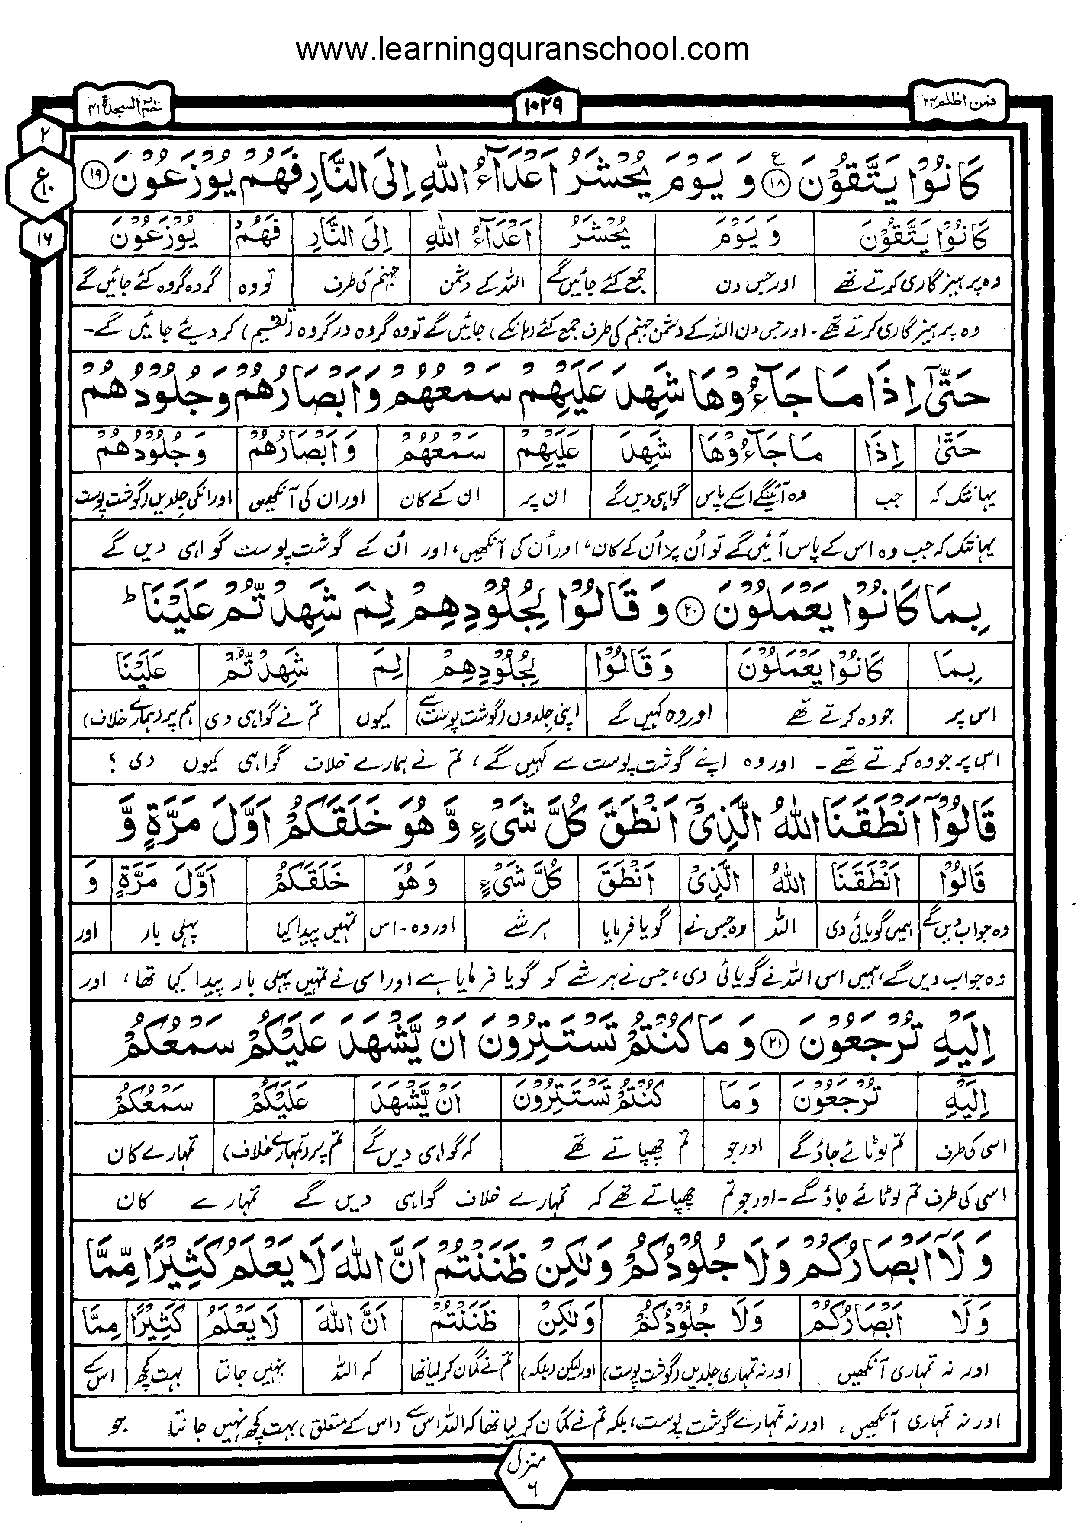 www.learningquranschool.com
حٰم السجدة ۴۱
۱۰۲۹
فمن اظلم ۲۴
۲
ع
۱۰
۱۶
كَانُوْا يَتَّقُوْنَ ۝۱۸ ع وَ يَوْمَ يُحْشَرُ اَعْدَآءُ اللّٰهِ اِلَى النَّارِ فَهُمْ يُوْزَعُوْنَ ۝۱۹
كَانُوْا يَتَّقُوْنَ وَ يَوْمَ يُحْشَرُ اَعْدَآءُ اللّٰهِ اِلَى النَّارِ فَهُمْ يُوْزَعُوْنَ
وہ پرہیزگاری کرتے تھے اور جس دن جمع کئے جائیں گے اللہ کے دشمن جہنم کی طرف تو وہ گروہ گروہ کئے جائیں گے
وہ پرہیزگاری کرتے تھے۔ اور جس دن اللہ کے دشمن جہنم کی طرف جمع کئے (ہانکے) جائیں گے تو وہ گروہ در گروہ (تقسیم) کر دیے جائیں گے۔
حَتّٰۤى اِذَا مَا جَآءُوْهَا شَهِدَ عَلَيْهِمْ سَمْعُهُمْ وَ اَبْصَارُهُمْ وَ جُلُوْدُهُمْ
حَتّٰى اِذَا مَا جَآءُوْهَا شَهِدَ عَلَيْهِمْ سَمْعُهُمْ وَ اَبْصَارُهُمْ وَ جُلُوْدُهُمْ
یہانتک کہ جب وہ آئینگے اسکے پاس گواہی دیں گے ان پر ان کے کان اور ان کی آنکھیں اور انکی جلدیں (گوشت پوست
یہانتک کہ جب وہ اس کے پاس آئیں گے تو اُن پر اُن کے کان، اور اُن کی آنکھیں، اور اُن کے گوشت پوست گواہی دیں گے
بِمَا كَانُوْا يَعْمَلُوْنَ ۝۲۰ وَ قَالُوْا لِجُلُوْدِهِمْ لِمَ شَهِدْتُّمْ عَلَيْنَا ؕ
بِمَا كَانُوْا يَعْمَلُوْنَ وَ قَالُوْا لِجُلُوْدِهِمْ لِمَ شَهِدْتُّمْ عَلَيْنَا
اس پر جو وہ کرتے تھے اور وہ کہیں گے اپنی جلدوں (گوشت پوست) سے کیوں تم نے گواہی دی ہم پر (ہمارے خلاف)
اس پر جو وہ کرتے تھے۔ اور وہ اپنے گوشت پوست سے کہیں گے، تم نے ہمارے خلاف گواہی کیوں دی؟
قَالُوْۤا اَنْطَقَنَا اللّٰهُ الَّذِيْۤ اَنْطَقَ كُلَّ شَيْءٍ وَّ هُوَ خَلَقَكُمْ اَوَّلَ مَرَّةٍ وَّ
قَالُوْۤا اَنْطَقَنَا اللّٰهُ الَّذِيْۤ اَنْطَقَ كُلَّ شَيْءٍ وَ هُوَ خَلَقَكُمْ اَوَّلَ مَرَّةٍ وَ
وہ جواب دیں گے ہمیں گویائی دی اللہ وہ جس نے گویا فرمایا ہر شے اور وہ۔ اس تمہیں پیدا کیا پہلی بار اور
وہ جواب دیں گے، ہمیں اس اللہ نے گویائی دی، جس نے ہر شے کو گویا فرمایا ہے اور اسی نے تمہیں پہلی بار پیدا کیا تھا، اور
اِلَيْهِ تُرْجَعُوْنَ ۝۲۱ وَ مَا كُنْتُمْ تَسْتَتِرُوْنَ اَنْ يَّشْهَدَ عَلَيْكُمْ سَمْعُكُمْ
اِلَيْهِ تُرْجَعُوْنَ وَ مَا كُنْتُمْ تَسْتَتِرُوْنَ اَنْ يَّشْهَدَ عَلَيْكُمْ سَمْعُكُمْ
اسی کی طرف تم لوٹائے جاؤ گے اور جو تم چھپاتے تھے کہ گواہی دیں گے تم پر (تمہارے خلاف) تمہارے کان
اسی کی طرف تم لوٹائے جاؤ گے۔ اور جو تم چھپاتے تھے کہ تمہارے خلاف گواہی دیں گے تمہارے کان
وَ لَاۤ اَبْصَارُكُمْ وَ لَا جُلُوْدُكُمْ وَ لٰكِنْ ظَنَنْتُمْ اَنَّ اللّٰهَ لَا يَعْلَمُ كَثِيْرًا مِّمَّا
وَ لَا اَبْصَارُكُمْ وَ لَا جُلُوْدُكُمْ وَ لٰكِنْ ظَنَنْتُمْ اَنَّ اللّٰهَ لَا يَعْلَمُ كَثِيْرًا مِّمَّا
اور نہ تمہاری آنکھیں اور نہ تمہاری جلدیں (گوشت پوست) اور لیکن (بلکہ) تم نے گمان کر لیا تھا کہ اللہ نہیں جانتا بہت کچھ اس سے
اور نہ تمہاری آنکھیں، اور نہ تمہارے گوشت پوست، بلکہ تم نے گمان کر لیا تھا کہ اللہ اس سے (اس کے متعلق) بہت کچھ نہیں جانتا جو
منزل
۶